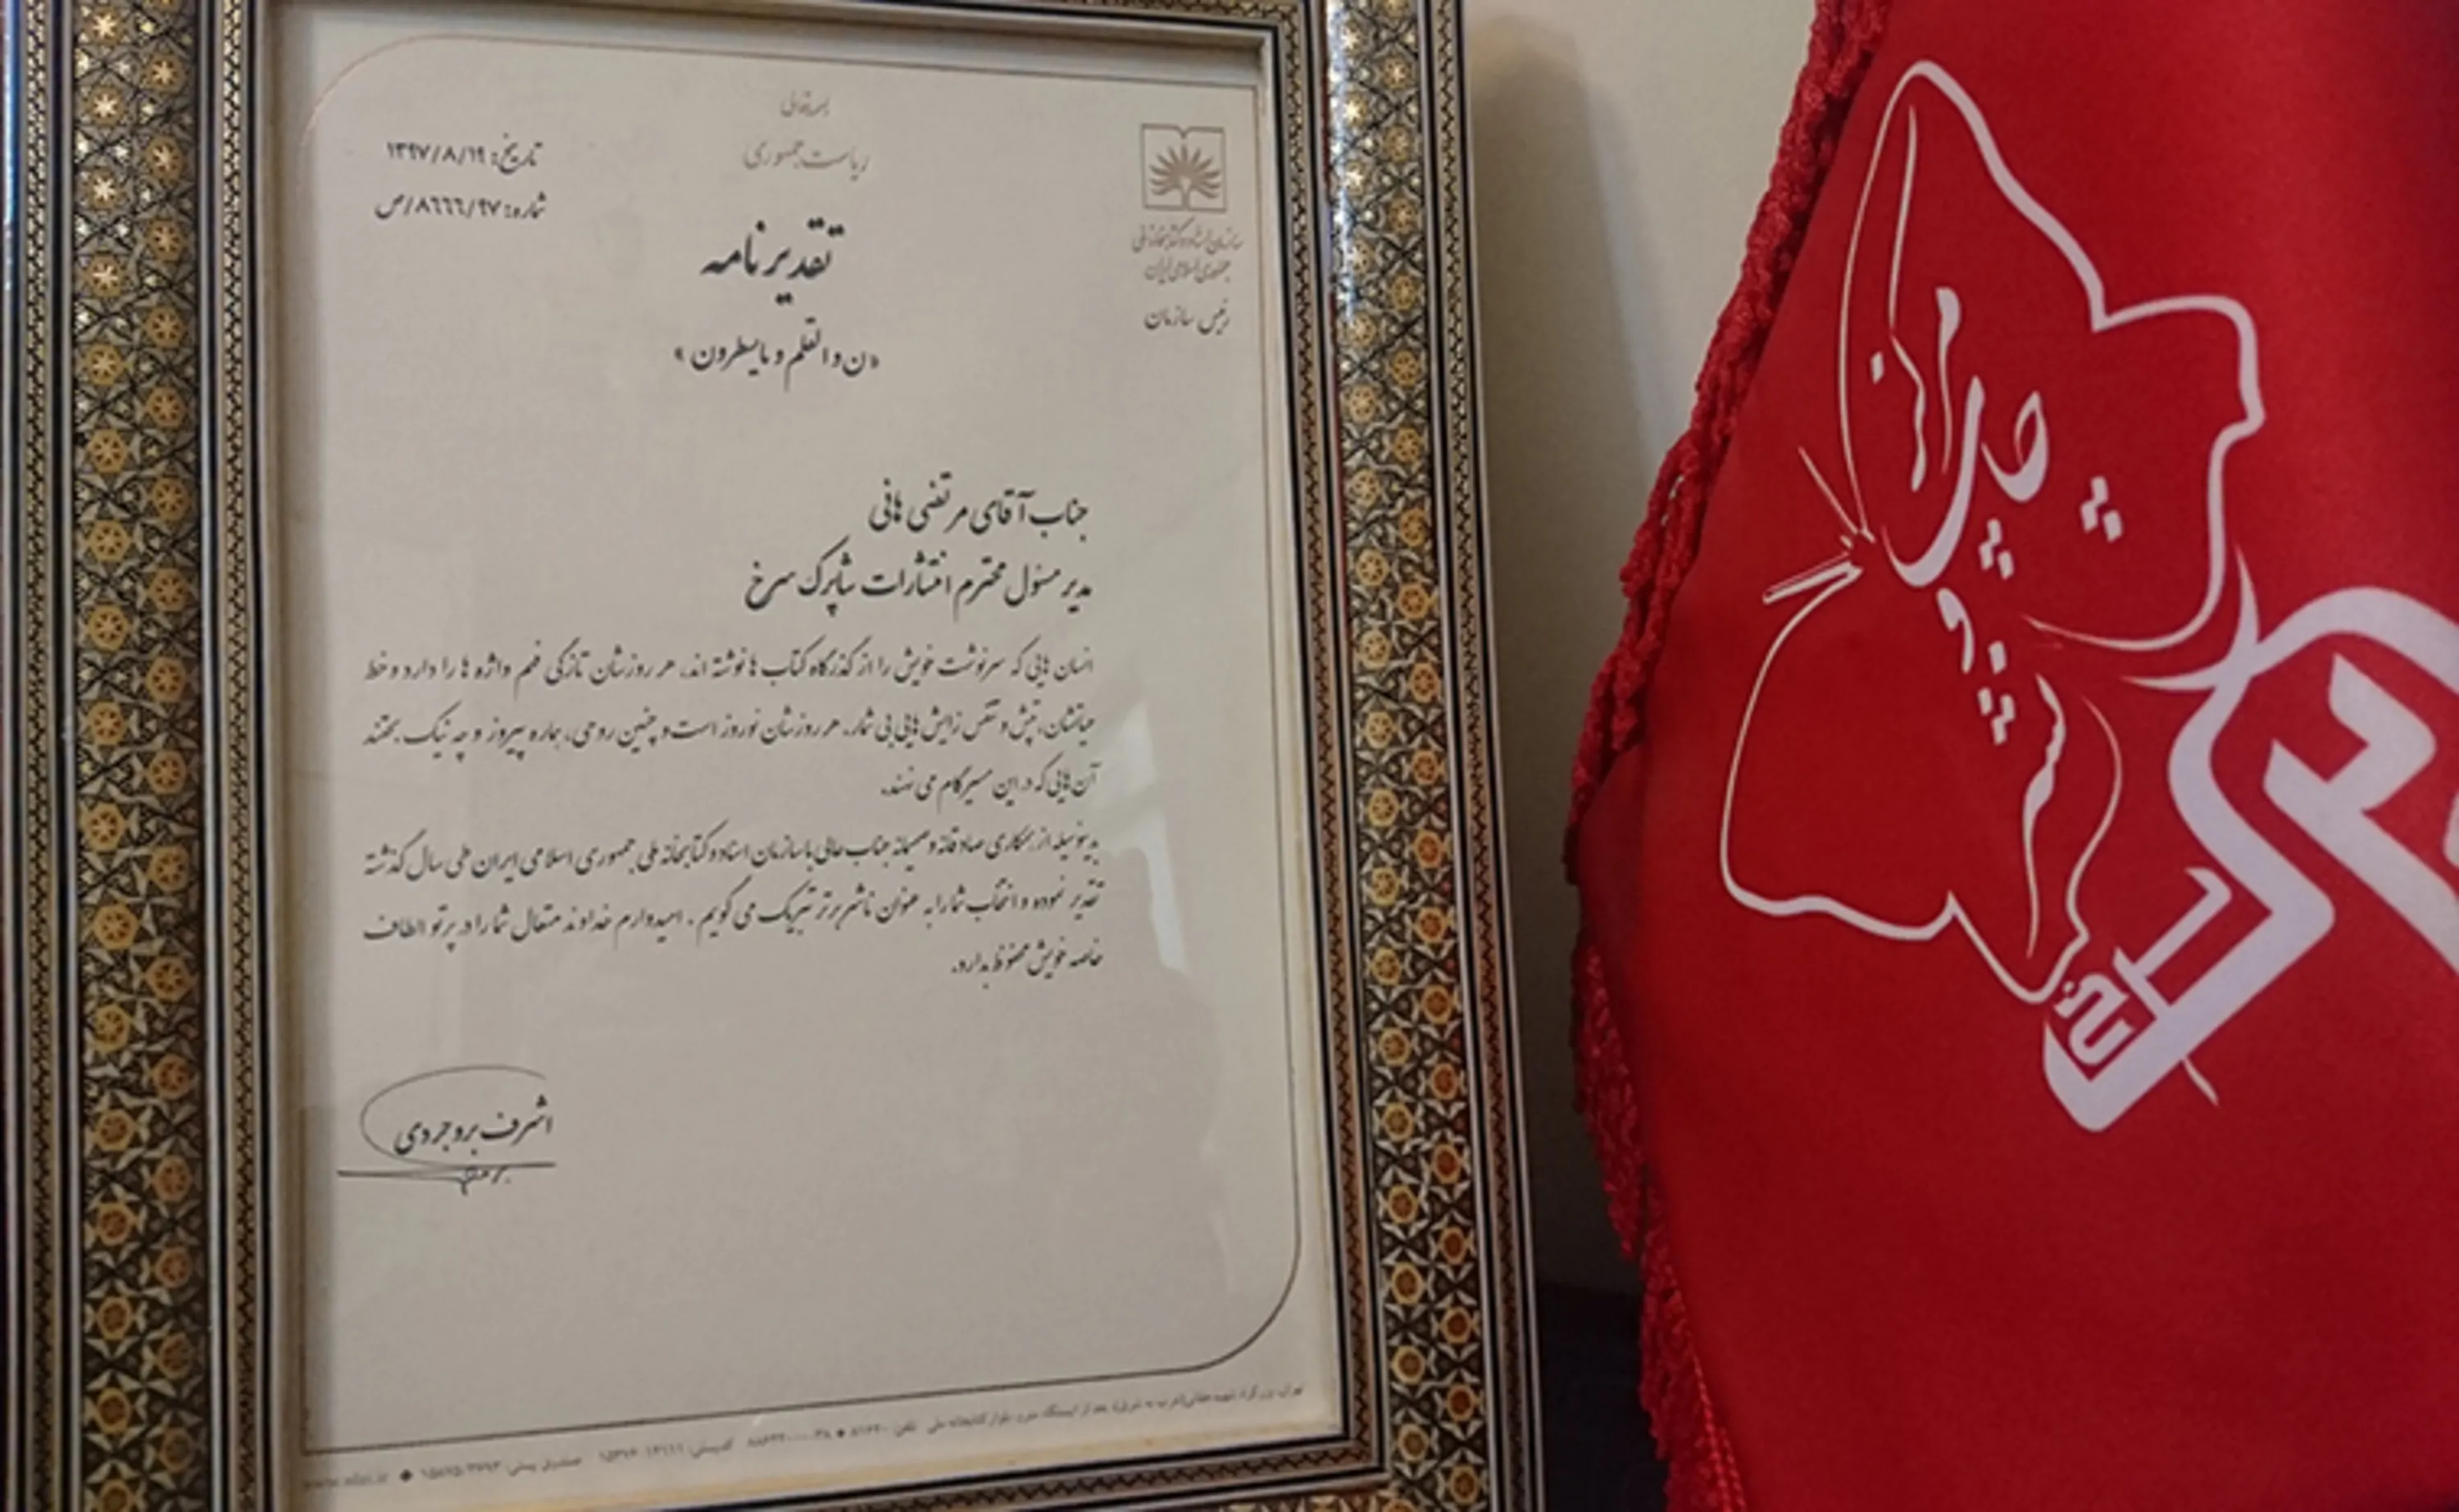 بسمه تعالی
ریاست جمهوری
سازمان اسناد و کتابخانه ملی
جمهوری اسلامی ایران
رئیس سازمان
تاریخ: ۱۳۹۷/۸/۱۹
شماره: ۸۶۶۶/۹۷/ص
تقدیرنامه
«ن والقلم و مایسطرون»
جناب آقای مرتضی هانی
مدیر مسئول محترم انتشارات شاپرک سرخ
انسان هایی که سرنوشت خویش را از گذرگاه کتاب ها نوشته اند، هر روزشان تازگی فهم واژه ها را دارد و خط
حیاتشان، تپش و تنفس زایش هایی بی شمار. هر روزشان نوروز است و چنین روحی، هماره پیروز و چه نیک بختند
آن هایی که در این مسیر گام می نهند.
بدینوسیله از همکاری صادقانه و صمیمانه جناب عالی با سازمان اسناد و کتابخانه ملی جمهوری اسلامی ایران طی سال گذشته
تقدیر نموده و انتخاب شما را به عنوان ناشر برتر تبریک می گویم. امیدوارم خداوند متعال شما را در پرتو الطاف
خاصه خویش محفوظ بدارد.
اشرف بروجردی
مرکز
چاپ
و
نشر